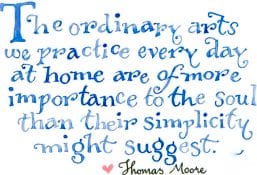 The ordinary arts
we practice every day
at home are of more
importance to the soul
than their simplicity
might suggest.
Thomas Moore